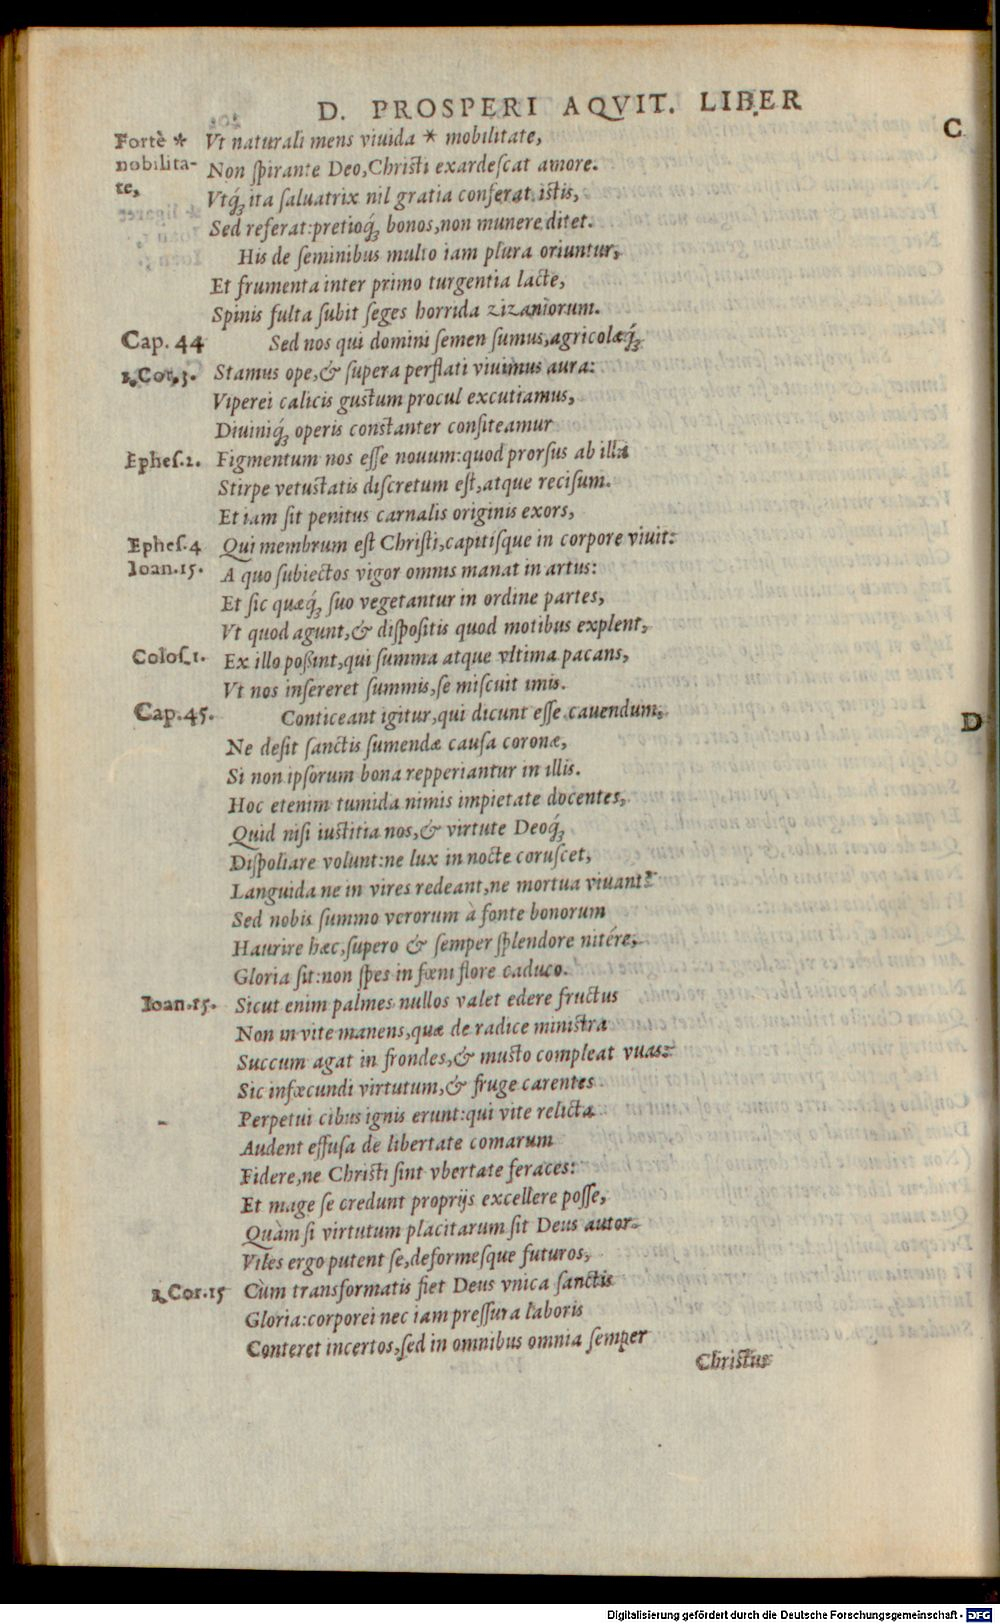 D. PROSPERI AQVIT. LIBER
C
Fortè * Vt naturali mens viuida * mobilitate,
nobilita- Non ſpirante Deo, Chriſti exardeſcat amore.
te, Vtq́; ita ſaluatrix nil gratia conferat iſtis,
Sed referat: pretioq́; bonos, non munere ditet.
His de ſeminibus multo iam plura oriuntur,
Et frumenta inter primo turgentia lacte,
Spinis fulta ſubit ſeges horrida zizaniorum.
Cap. 44 Sed nos qui domini ſemen ſumus, agricolæq́;
1. Cor. 3. Stamus ope, & ſupera perflati viuimus aura:
Viperei calicis guſtum procul excutiamus,
Diuiniq́; operis conſtanter conſiteamur
Epheſ. 2. Figmentum nos eſſe nouum: quod prorſus ab illa
Stirpe vetuſtatis diſcretum eſt, atque reciſum.
Et iam ſit penitus carnalis originis exors,
Epheſ. 4 Qui membrum eſt Chriſti, capitiſque in corpore viuit:
Ioan. 15. A quo ſubiectos vigor omnis manat in artus:
Et ſic quæq́; ſuo vegetantur in ordine partes,
Vt quod agunt, & diſpoſitis quod motibus explent,
Coloſ. 1. Ex illo poßint, qui ſumma atque vltima pacans,
Vt nos inſereret ſummis, ſe miſcuit imis.
Cap. 45. Conticeant igitur, qui dicunt eſſe cauendum,
D
Ne deſit ſanctis ſumendæ cauſa coronæ,
Si non ipſorum bona repperiantur in illis.
Hoc etenim tumida nimis impietate docentes,
Quid niſi iuſtitia nos, & virtute Deoq́;
Diſpoliare volunt: ne lux in nocte coruſcet,
Languida ne in vires redeant, ne mortua viuant?
Sed nobis ſummo verorum à fonte bonorum
Haurire hæc, ſupero & ſemper ſplendore nitére,
Gloria ſit: non ſpes in fœni flore caduco.
Ioan. 15. Sicut enim palmes nullos valet edere fructus
Non in vite manens, quæ de radice miniſtra
Succum agat in frondes, & muſto compleat vuas:
Sic infœcundi virtutum, & fruge carentes
Perpetui cibus ignis erunt: qui vite relicta
Audent effuſa de libertate comarum
Fidere, ne Chriſti ſint vbertate feraces:
Et mage ſe credunt proprijs excellere poſſe,
Quàm ſi virtutum placitarum ſit Deus autor.
Viles ergo putent ſe, deformeſque futuros,
1. Cor. 15 Cùm transformatis fiet Deus vnica ſanctis
Gloria: corporei nec iam preſſura laboris
Conteret incertos, ſed in omnibus omnia ſemper
Chriſtus
Digitalisierung gefördert durch die Deutsche Forschungsgemeinschaft - DFG